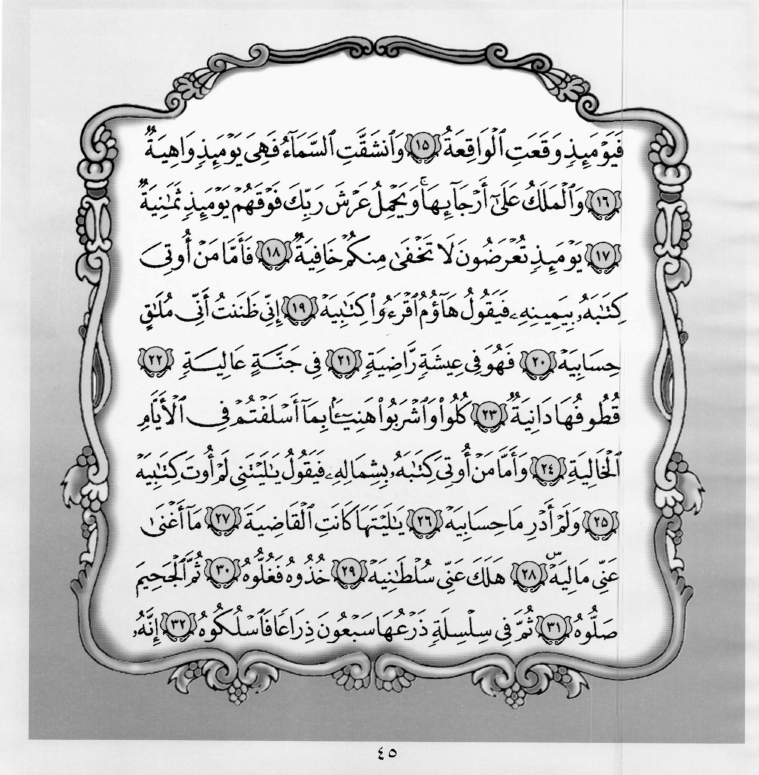 فَيَوۡمَئِذٖ وَقَعَتِ ٱلۡوَاقِعَةُ ١٥ وَٱنشَقَّتِ ٱلسَّمَآءُ فَهِيَ يَوۡمَئِذٖ وَاهِيَةٞ
١٦ وَٱلۡمَلَكُ عَلَىٰٓ أَرۡجَآئِهَاۚ وَيَحۡمِلُ عَرۡشَ رَبِّكَ فَوۡقَهُمۡ يَوۡمَئِذٖ ثَمَٰنِيَةٞ
١٧ يَوۡمَئِذٖ تُعۡرَضُونَ لَا تَخۡفَىٰ مِنكُمۡ خَافِيَةٞ ١٨ فَأَمَّا مَنۡ أُوتِيَ
كِتَٰبَهُۥ بِيَمِينِهِۦ فَيَقُولُ هَآؤُمُ ٱقۡرَءُواْ كِتَٰبِيَهۡ ١٩ إِنِّي ظَنَنتُ أَنِّي مُلَٰقٍ
حِسَابِيَهۡ ٢٠ فَهُوَ فِي عِيشَةٖ رَّاضِيَةٖ ٢١ فِي جَنَّةٍ عَالِيَةٖ ٢٢
قُطُوفُهَا دَانِيَةٞ ٢٣ كُلُواْ وَٱشۡرَبُواْ هَنِيٓـَٔۢا بِمَآ أَسۡلَفۡتُمۡ فِي ٱلۡأَيَّامِ
ٱلۡخَالِيَةِ ٢٤ وَأَمَّا مَنۡ أُوتِيَ كِتَٰبَهُۥ بِشِمَالِهِۦ فَيَقُولُ يَٰلَيۡتَنِي لَمۡ أُوتَ كِتَٰبِيَهۡ
٢٥ وَلَمۡ أَدۡرِ مَا حِسَابِيَهۡ ٢٦ يَٰلَيۡتَهَا كَانَتِ ٱلۡقَاضِيَةَ ٢٧ مَآ أَغۡنَىٰ
عَنِّي مَالِيَهۡۜ ٢٨ هَلَكَ عَنِّي سُلۡطَٰنِيَهۡ ٢٩ خُذُوهُ فَغُلُّوهُ ٣٠ ثُمَّ ٱلۡجَحِيمَ
صَلُّوهُ ٣١ ثُمَّ فِي سِلۡسِلَةٖ ذَرۡعُهَا سَبۡعُونَ ذِرَاعٗا فَٱسۡلُكُوهُ ٣٢ إِنَّهُۥ
٤٥